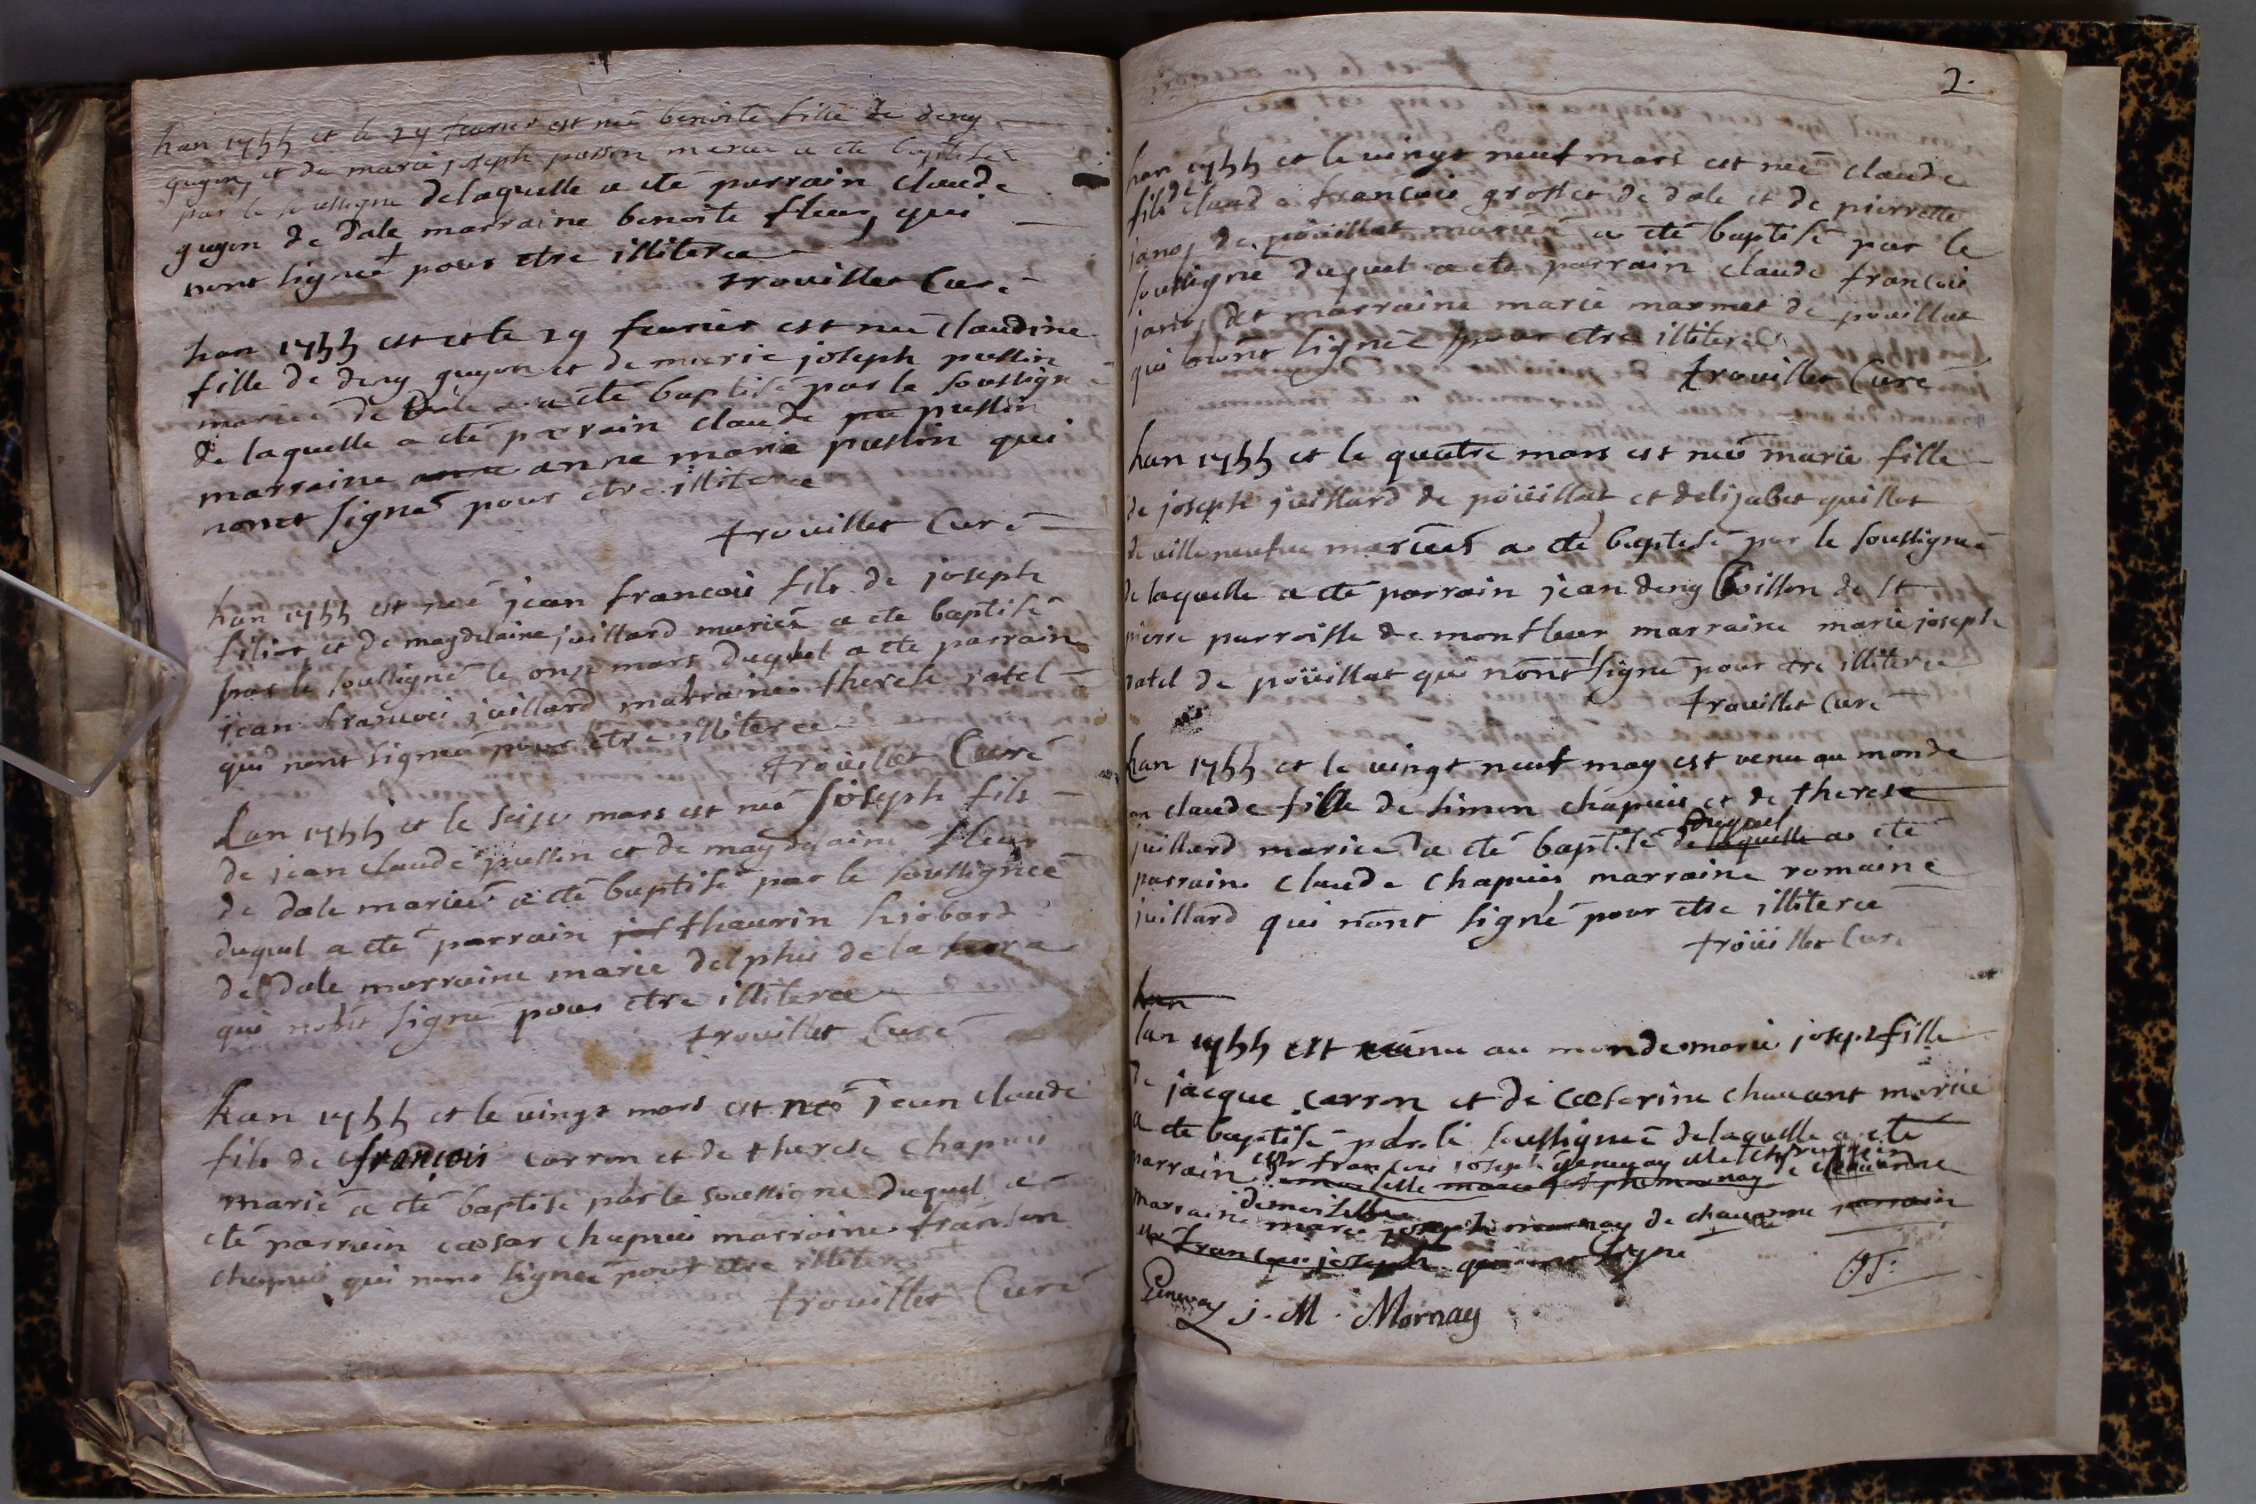 Lan 1755 et le 29 fevrier est neé benoite fille de deny
guyon et de marie joseph pussin mariee a eté baptisée
par le soussigné delaquelle a eté parrain claude
guyon de dale marraine benoite fleur qui
nont signeé pour etre illiteree
trouillet Curé
Lan 1755 est et le 29 fevrier est neé claudine
fille de deny guyon et de marie joseph pussin
mariée de dale a eté baptisé par le soussigné
de laquelle a eté parrain claude pu pussin
marraine anne anne marie pussin qui
nont signé pour etre illiteree
trouillet Curé
Lan 1755 est neé jean francois fils de joseph
filiot et de magdelaine juillard marieé a eté baptisé
par le soussigné le onze mars duquel a eté parrain
jean francois juillard marraine therese ratel
qui nont signeé pour etre illiteree
trouillet Curé
Lan 1755 et le seize mars est neé joseph fils
de jean claude pussin et de magdelaine fleur
de dale marieé a eté baptisé par le soussigneé
duquel a eté parrain jos thaurin hiobard
de dale marraine marie delphis de la
qui nont signé pour etre illiteree
trouillet Curé
Lan 1755 et le vingt mars est neé jean claude
fils de francois carron et de therese chapuis
marié a eté baptisé par le soussigné duquel a
eté parrain cæsar chapuis marraine franson
chapuis qui nont signeé pour etre illiteree
trouillet Curé
2.
Lan 1755 et le vingt neuf mars est neé claude
fils de claude francois grosset de dale et de pierrette
de poüillat marieé a eté baptisé par le
soussigné duquel a eté parrain claude francois
et marraine marie marmet de poüillat
qui nont signeé pour etre illiteree
trouillet Curé
Lan 1755 et le quatre mars est neé marie fille
de joseph juillard de poüillat et delizabet guillot
de villeneufve marieés a eté baptisé par le soussigneé
de laquelle a eté parrain jean deny Boisson de st
pierre parroisse de montfleur marraine marie joseph
ratel de poüillat qui nont signé pour etre illiteree
trouillet Curé
Lan 1755 et le vingt neuf may est venu au monde
an claude fille de simon chapuis et de therese
juillard mariee a eté baptisé delaquelle duquel a eté
parrain claude chapuis marraine romaine
juillard qui nont signé pour etre illiteree
troüillet Curé
Lan
lan 1755 est veünu au monde marie joseph fille
de jacque carron et de cæterine chavant mariée
a eté baptisé par le soussigneé delaquelle a eté
parrain francois joseph genevay
demoiselle marie joseph mornay de
marraine demoiselle marie joseph mornay de chavanne parrain
francois joseph qui ont signé
Genevay j. M. Mornay